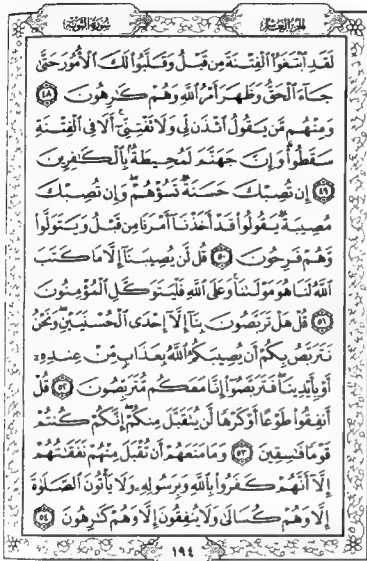 سورة التوبة الجزء العاشر
لَقَدِ ٱبْتَغَوُا۟ ٱلْفِتْنَةَ مِن قَبْلُ وَقَلَّبُوا۟ لَكَ ٱلْأُمُورَ حَتَّىٰ
جَآءَ ٱلْحَقُّ وَظَهَرَ أَمْرُ ٱللَّهِ وَهُمْ كَٰرِهُونَ ٤٨
وَمِنْهُم مَّن يَقُولُ ٱئْذَن لِّى وَلَا تَفْتِنِّىٓ ۚ أَلَا فِى ٱلْفِتْنَةِ
سَقَطُوا۟ ۗ وَإِنَّ جَهَنَّمَ لَمُحِيطَةٌۢ بِٱلْكَٰفِرِينَ
٤٩ إِن تُصِبْكَ حَسَنَةٌ تَسُؤْهُمْ ۖ وَإِن تُصِبْكَ
مُصِيبَةٌ يَقُولُوا۟ قَدْ أَخَذْنَآ أَمْرَنَا مِن قَبْلُ وَيَتَوَلَّوا۟
وَّهُمْ فَرِحُونَ ٥٠ قُل لَّن يُصِيبَنَآ إِلَّا مَا كَتَبَ
ٱللَّهُ لَنَا هُوَ مَوْلَىٰنَا ۚ وَعَلَى ٱللَّهِ فَلْيَتَوَكَّلِ ٱلْمُؤْمِنُونَ
٥١ قُلْ هَلْ تَرَبَّصُونَ بِنَآ إِلَّآ إِحْدَى ٱلْحُسْنَيَيْنِ ۖ وَنَحْنُ
نَتَرَبَّصُ بِكُمْ أَن يُصِيبَكُمُ ٱللَّهُ بِعَذَابٍ مِّنْ عِندِهِۦٓ
أَوْ بِأَيْدِينَا ۖ فَتَرَبَّصُوٓا۟ إِنَّا مَعَكُم مُّتَرَبِّصُونَ ٥٢ قُلْ
أَنفِقُوا۟ طَوْعًا أَوْ كَرْهًا لَّن يُتَقَبَّلَ مِنكُمْ ۖ إِنَّكُمْ كُنتُمْ
قَوْمًا فَٰسِقِينَ ٥٣ وَمَا مَنَعَهُمْ أَن تُقْبَلَ مِنْهُمْ نَفَقَٰتُهُمْ
إِلَّآ أَنَّهُمْ كَفَرُوا۟ بِٱللَّهِ وَبِرَسُولِهِۦ وَلَا يَأْتُونَ ٱلصَّلَوٰةَ
إِلَّا وَهُمْ كُسَالَىٰ وَلَا يُنفِقُونَ إِلَّا وَهُمْ كَٰرِهُونَ ٥٤
١٩٤